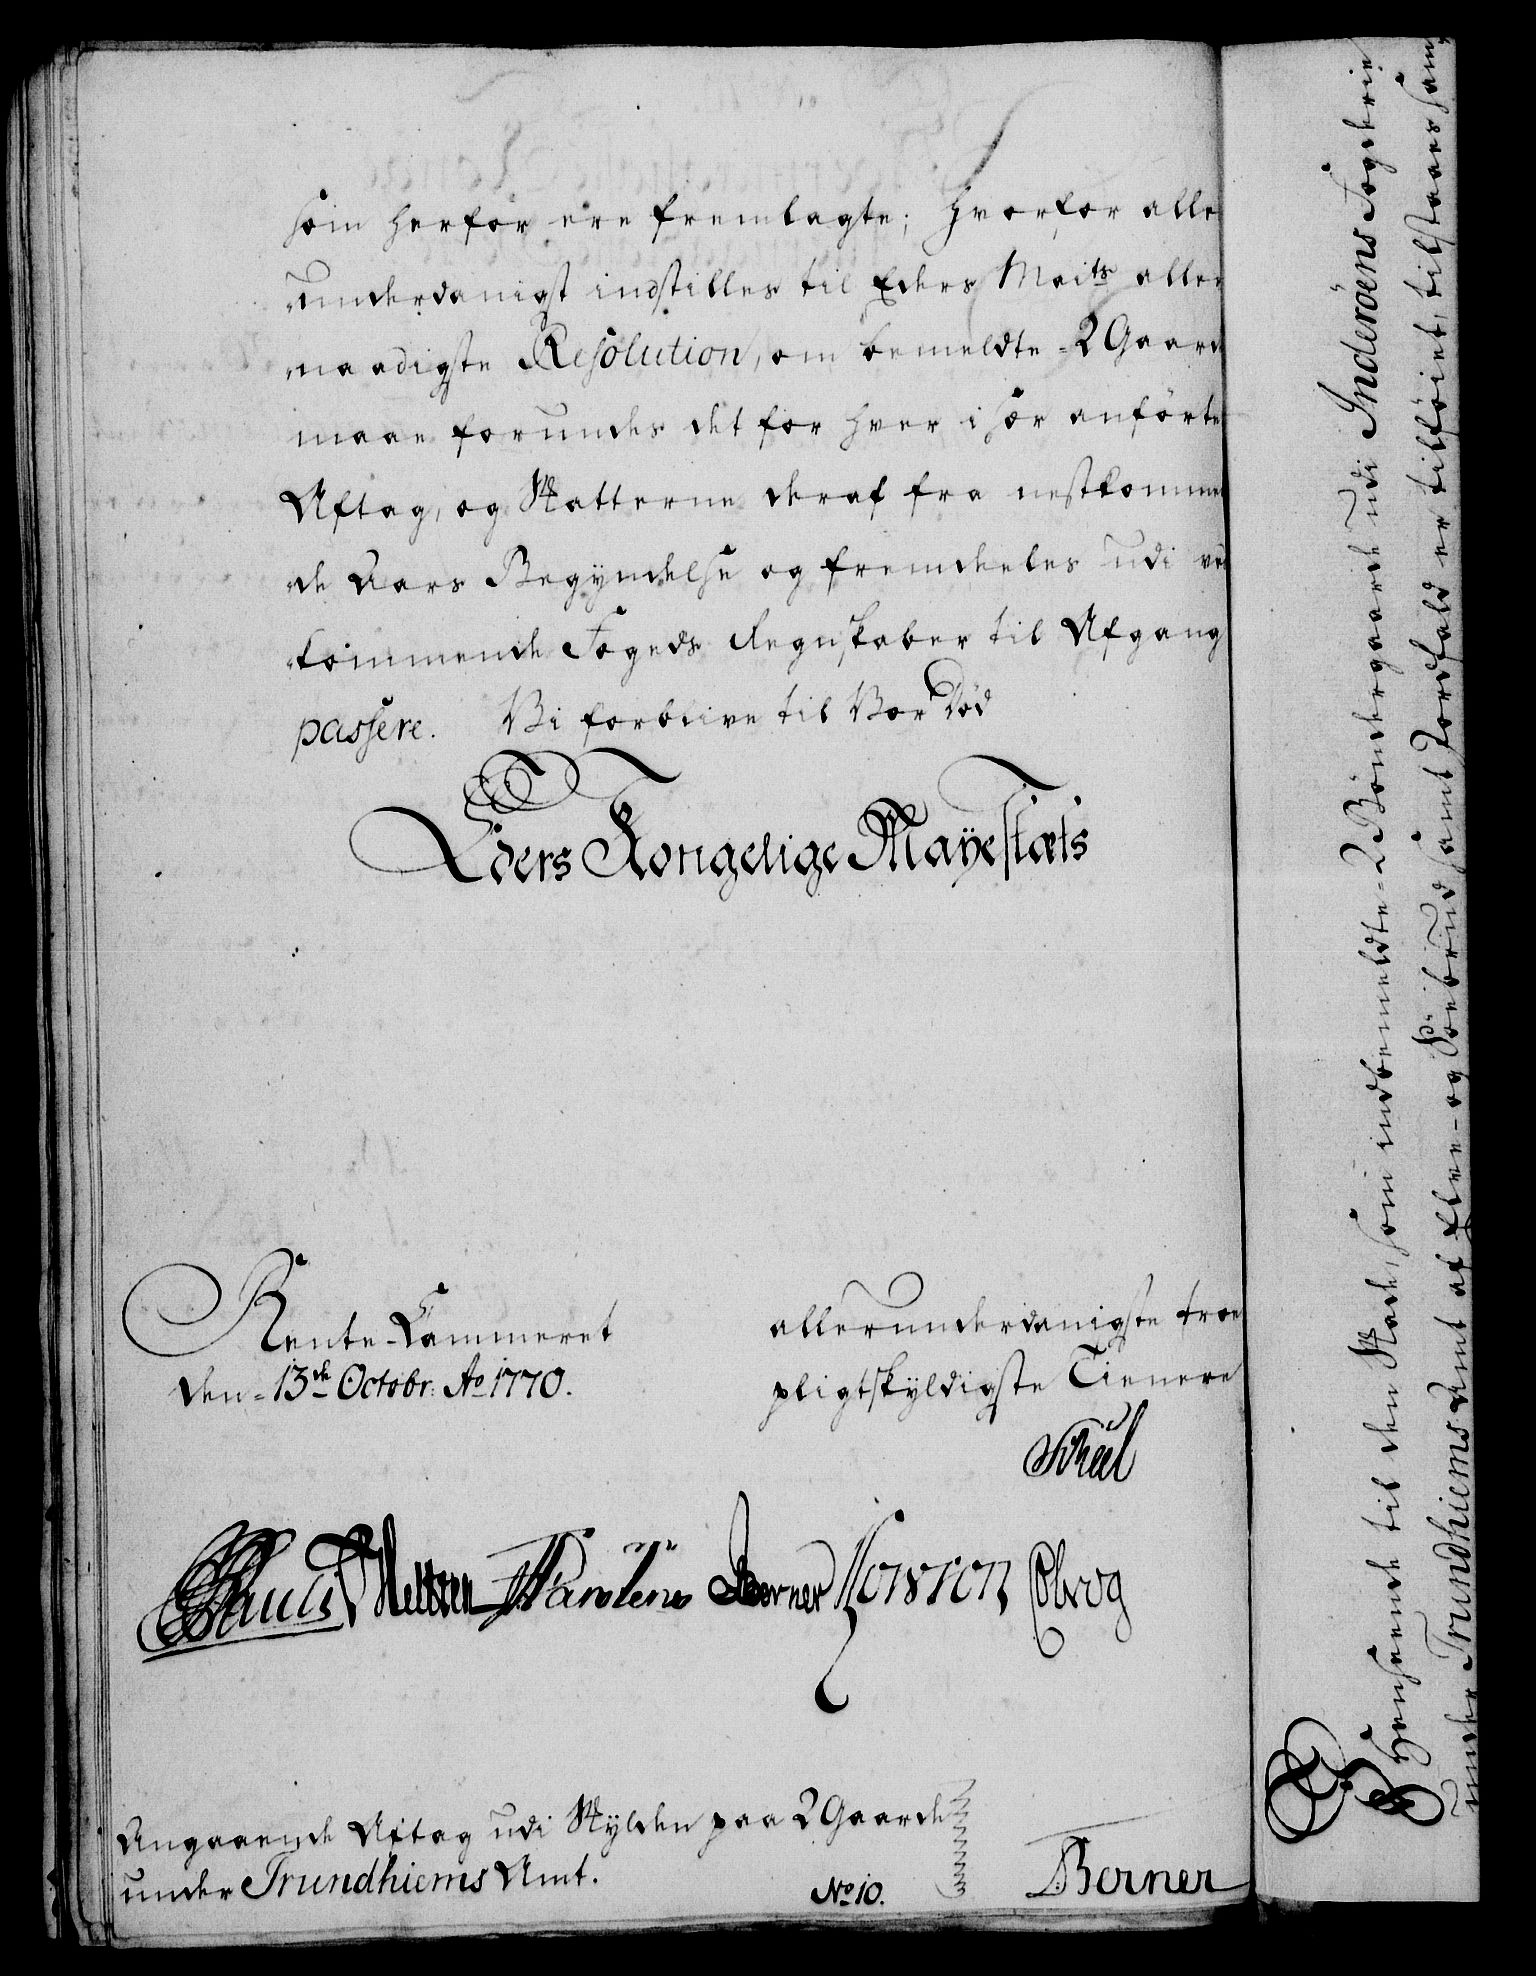 som herfor ere fremlagte; hvorfor aller
underdanigst indstilles til Eders Maits aller
naadigste Resolution, om bemeldte 2 Gaarde
maae forundes det for hver i sær anførte
Aftag, og Skatterne deraf fra nestkommen
de Aars Begyndelse og fremdeeles udi ved
kommende Fogeds Regnskaber til Afgang
passere. Vi forblive til Vor Død
Eders Kongelige Mayestæts
Rente-Cammeret
den 13de Octobr: Ao 1770.
allerunderdanigste troe
pligtskyldigste Tienere
Scheel
Berner
Angaaende Aftag udi Skylden paa 2 Gaarde
under Trundhiems Amt.
No 10.
Berner
I Henseende til den Skade, som indbemeldte 2 Bøndergaarde udi Inderøens Fogderie
under Trundhiems Amt af Elve- og Søebrud samt Jordfald er tilføiet, tilstaaes ham